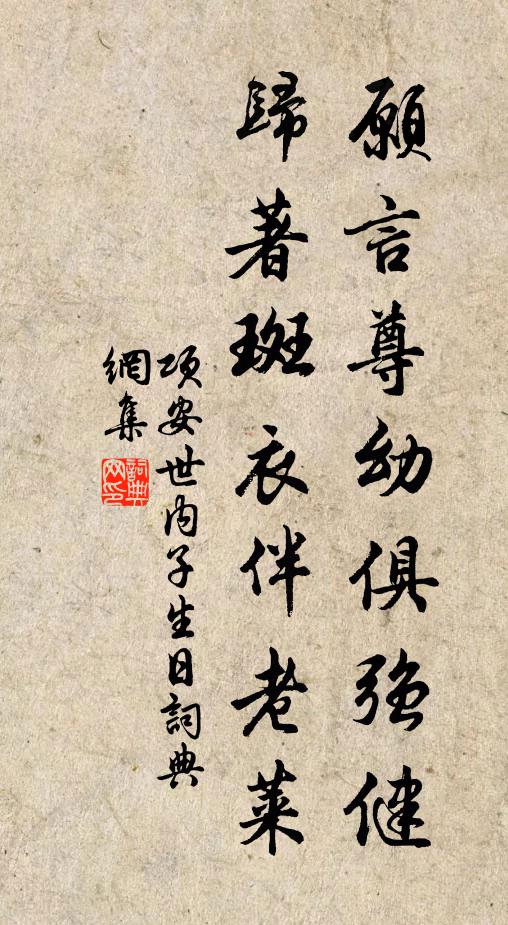 願言尊幼俱強健
歸著斑衣伴老萊
項安世内子生日詞典
網集
詞典網印